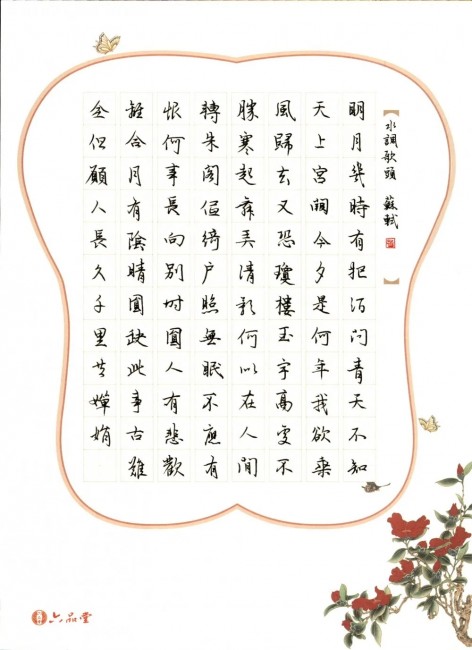 【水調歌頭 蘇軾】
明月幾時有把酒問青天不知
天上宮闕今夕是何年我欲乘
風歸去又恐瓊樓玉宇高處不
勝寒起舞弄清影何似在人間
轉朱閣低綺戶照無眠不應有
恨何事長向別時圓人有悲歡
離合月有陰晴圓缺此事古難
全但願人長久千里共嬋娟
六品堂